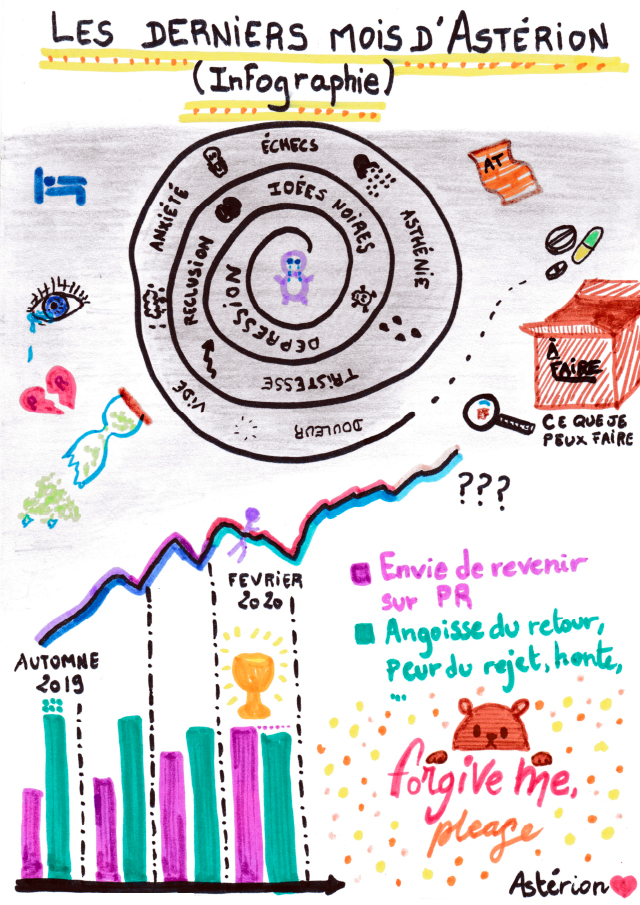 LES DERNIERS MOIS D'ASTÉRION
(Infographie)
ÉCHECS
ANXIÉTÉ
IDÉES NOIRES
ASTHÉNIE
RECLUSION
DEPRESSION
TRISTESSE
VIDE
DOULEUR
AT
À
FAIRE
CE QUE JE
PEUX FAIRE
P R
???
FEVRIER
2020
AUTOMNE
2019
Envie de revenir
sur PR
Angoisse du retour,
Peur du rejet, honte,
...
forgive me,
please
Astérion